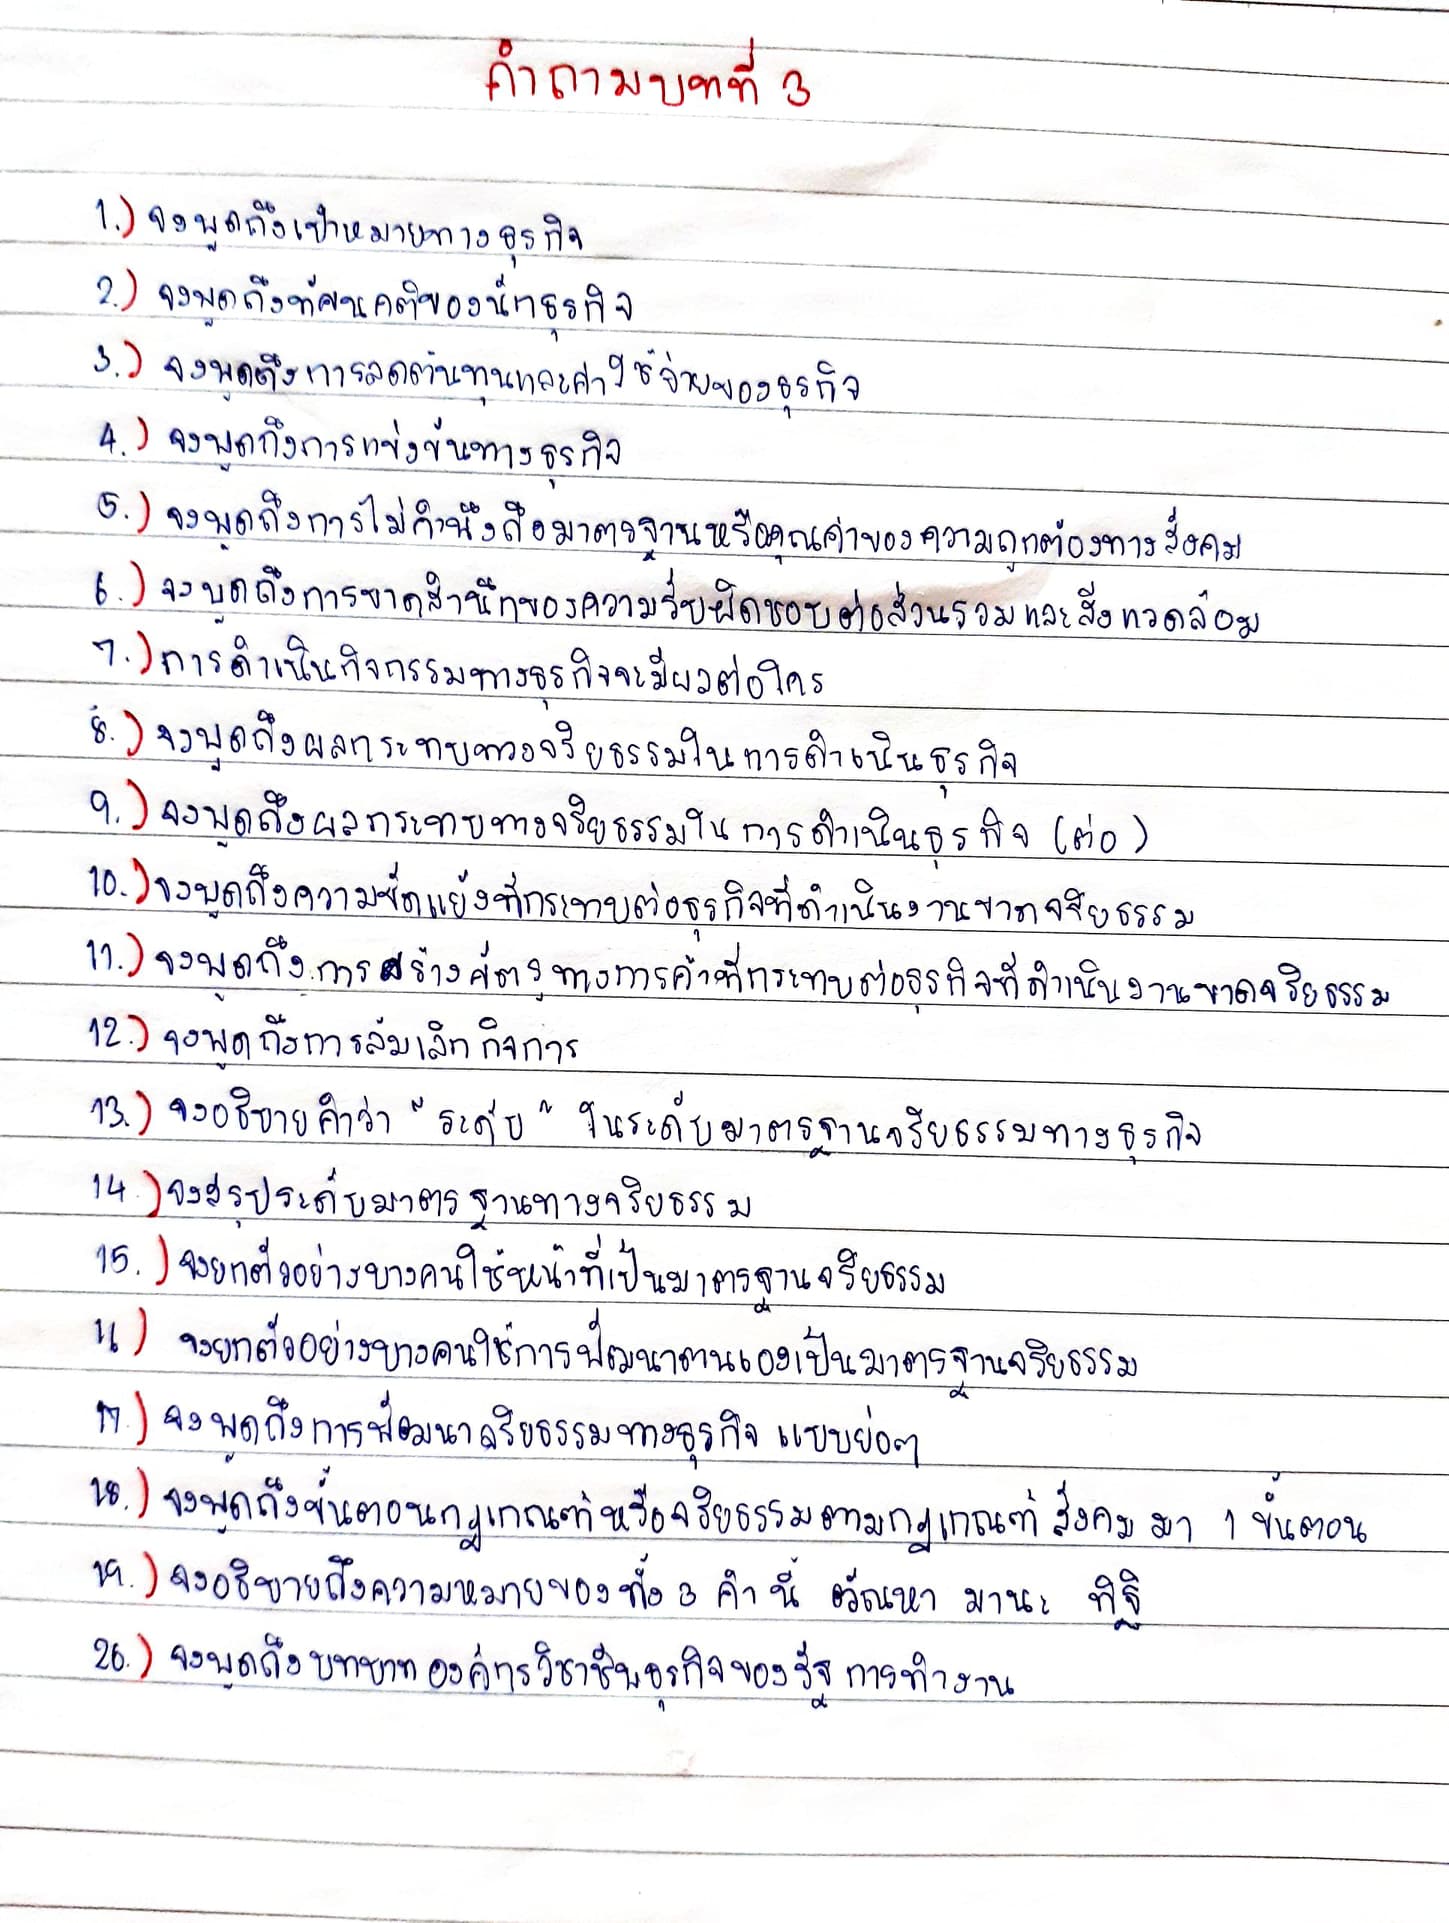 คำถามบทที่ 3
1.) จงพูดถึงเป้าหมายทางธุรกิจ
2.) จงพูดถึงทัศนคติของนักธุรกิจ
3.) จงพูดถึงการลดต้นทุนและค่าใช้จ่ายของธุรกิจ
4.) จงพูดถึงการแข่งขันทางธุรกิจ
5.) จงพูดถึงการไม่คำนึงถึงมาตรฐานหรือคุณค่าของความถูกต้องทางสังคม
6.) จงพูดถึงการขาดสำนึกของความรับผิดชอบต่อส่วนรวมและสิ่งแวดล้อม
7.) การดำเนินกิจกรรมทางธุรกิจจะมีผลต่อใคร
8.) จงพูดถึงผลกระทบทางจริยธรรมในการดำเนินธุรกิจ
9.) จงพูดถึงผลกระทบทางจริยธรรมในการดำเนินธุรกิจ (ต่อ)
10.) จงพูดถึงความขัดแย้งที่กระทบต่อธุรกิจที่ดำเนินงานขาดจริยธรรม
11.) จงพูดถึงการสร้างศัตรูทางการค้าที่กระทบต่อธุรกิจที่ดำเนินงานขาดจริยธรรม
12.) จงพูดถึงการล้มเลิกกิจการ
13.) จงอธิบายคำว่า "ระดับ" ในระดับมาตรฐานจริยธรรมทางธุรกิจ
14.) จงสรุประดับมาตรฐานทางจริยธรรม
15.) จงยกตัวอย่างบางคนใช้หน้าที่เป็นมาตรฐานจริยธรรม
16) จงยกตัวอย่างบางคนใช้การพัฒนาตนเองเป็นมาตรฐานจริยธรรม
17.) จงพูดถึงการพัฒนาจริยธรรมทางธุรกิจ แบบย่อๆ
18.) จงพูดถึงขั้นตอนกฎเกณฑ์หรือจริยธรรมตามกฎเกณฑ์สังคม มา 1 ขั้นตอน
19.) จงอธิบายถึงความหมายของทั้ง 3 คำ นี้ ตัณหา มานะ ทิฐิ
20.) จงพูดถึงบทบาทองค์กรวิชาชีพธุรกิจของรัฐ การทำงาน